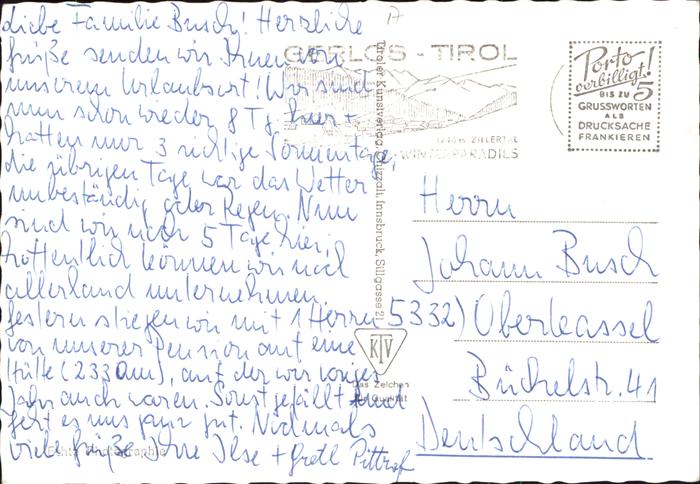 Liebe Familie Busch! Herzliche
Grüße senden wir Ihnen von
unserem Urlaubsort! Wir sind
nun schon wieder 8 Tg. hier +
hatten nur 3 richtige Sonnentage,
die übrigen Tage war das Wetter
unbeständig oder Regen. Nun
sind wir noch 5 Tage hier,
hoffentlich können wir noch
allerhand unternehmen.
Gestern stiegen wir mit 1 Herrn
von unserer Pension auf eine
Hütte (2330m), auf der wir voriges
Jahr auch waren. Sonst gefällt
es uns ganz gut. Nochmals
viele Grüße Ihre Ilse + Gretl
Echte Photographie
GERLOS - TIROL
1246 m ZILLERTAL
WINTERPARADIES
Porto
verbilligt!
BIS ZU 5
GRUSSWORTEN
ALS
DRUCKSACHE
FRANKIEREN
Tiroler Kunstverlag Chizzali, Innsbruck, Sillgasse 21
KTV
Das Zeichen
für Qualität
Herrn
Johann Busch
(5332) Oberkassel
Büchelstr. 41
Deutschland